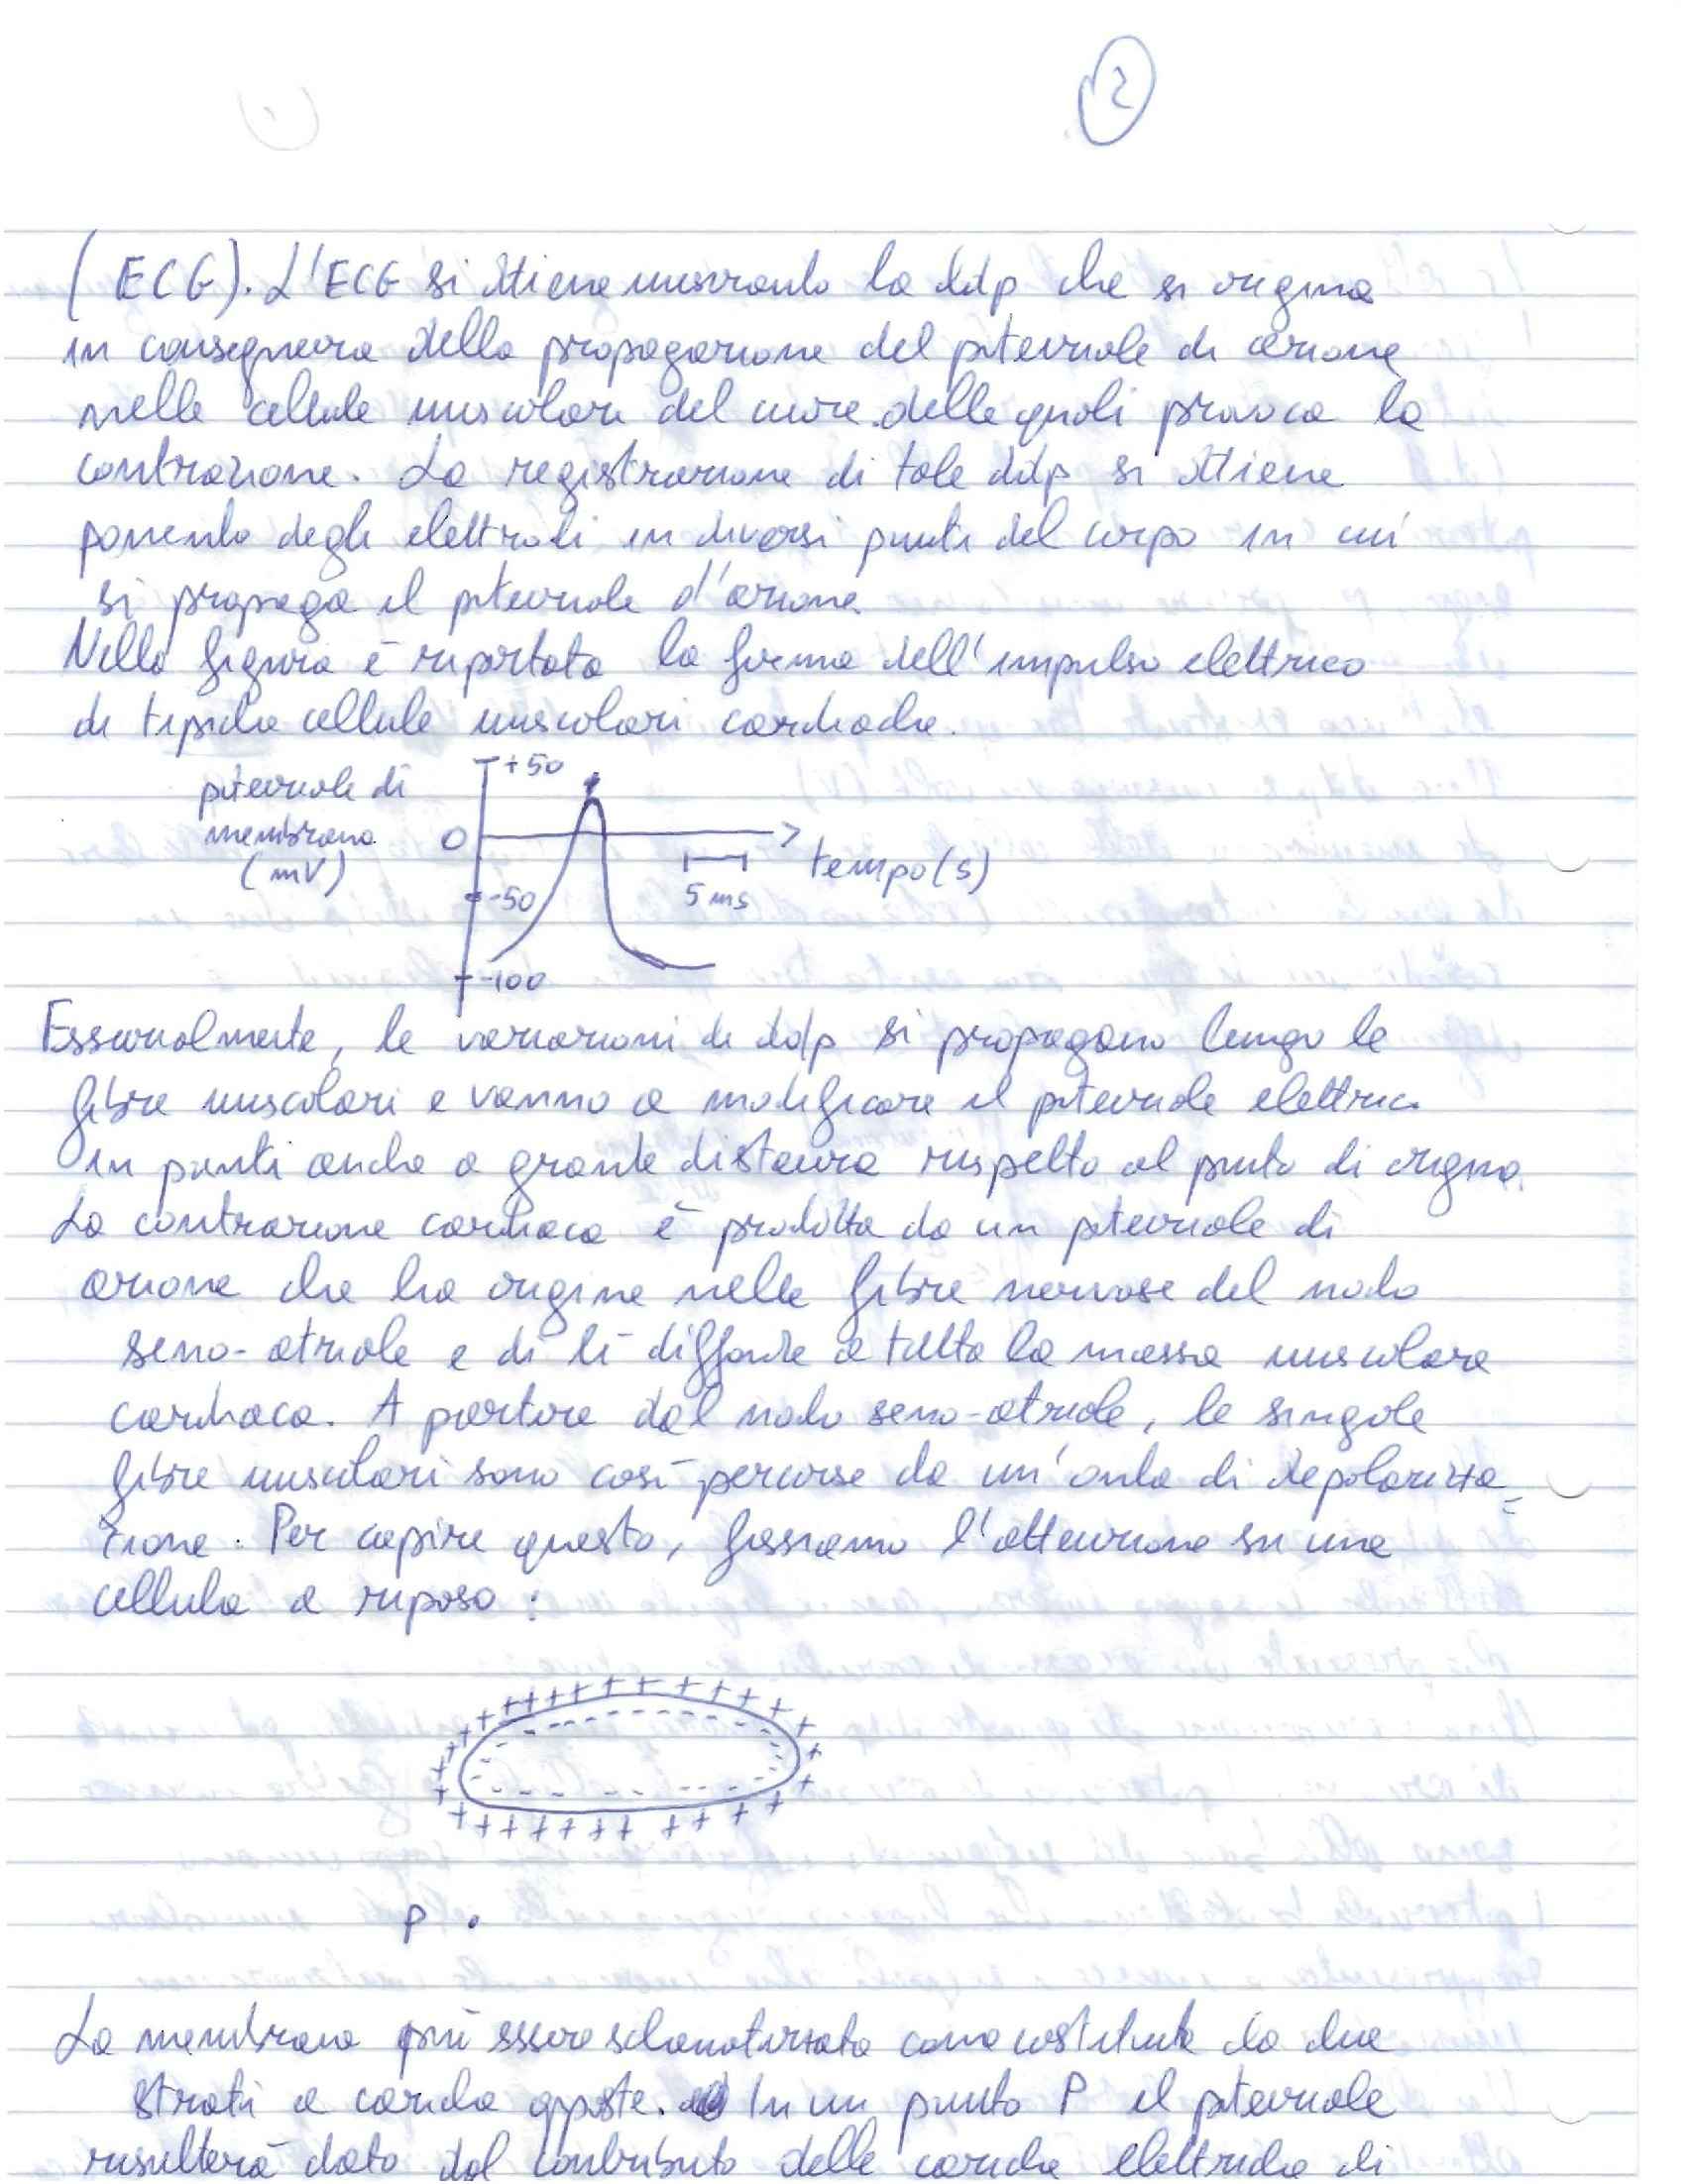 2
(ECG). L'ECG si ottiene misurando la ddp che si origina
in conseguenza della propagazione del potenziale di azione
nelle cellule muscolari del cuore delle quali provoca la
contrazione. La registrazione di tale ddp si ottiene
ponendo degli elettrodi in diversi punti del corpo in cui
si propaga il potenziale d'azione.
Nella figura è riportata la forma dell'impulso elettrico
di tipiche cellule muscolari cardiache.
potenziale di
membrana
(mV)
+50
0
-50
-100
5 ms
tempo (s)
Essenzialmente, le variazioni di ddp si propagano lungo le
fibre muscolari e vanno a modificare il potenziale elettrico
in punti anche a grande distanza rispetto al punto di origine.
La contrazione cardiaca è prodotta da un potenziale di
azione che ha origine nelle fibre nervose del nodo
seno-atriale e di lì diffonde a tutta la massa muscolare
cardiaca. A partire dal nodo seno-atriale, le singole
fibre muscolari sono così percorse da un'onda di depolarizza=
zione. Per capire questo, fissiamo l'attenzione su una
cellula a riposo:
P .
La membrana può essere schematizzata come costituita da due
strati a carica opposta. In un punto P il potenziale
risulterà dato dal contributo delle cariche elettriche di